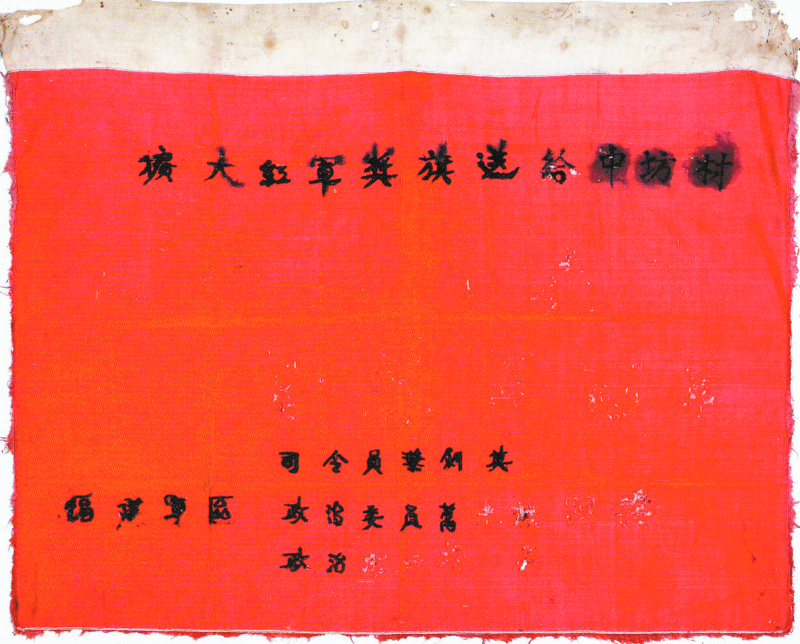 擴大紅軍獎旗送給中坊村
司令員葉劍英
福建軍區 政治委員萬
政治